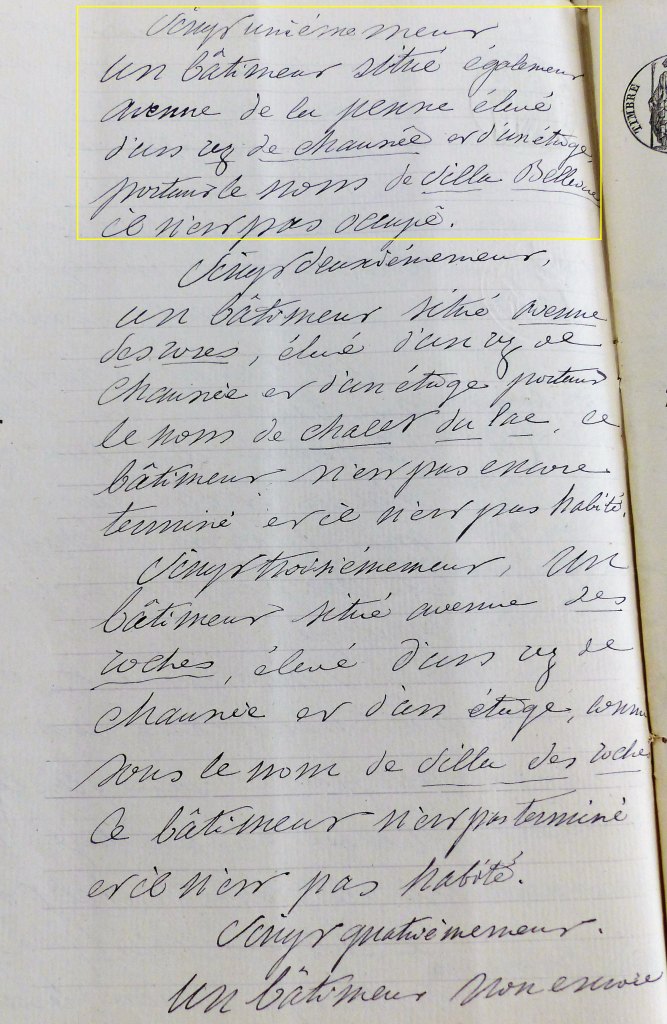 Vingt unièmement
un bâtiment situé également
avenue de la penne élevé
d'un rez de chaussée et d'un étage,
portant le nom de villa Bellevue
il n'est pas occupé.
Vingt deuxièmement,
un bâtiment situé avenue
des roses, élevé d'un rez de
chaussée et d'un étage portant
le nom de chalet du lac, ce
bâtiment n'est pas encore
terminé et il n'est pas habité.
Vingt troisièmement, un
bâtiment situé avenue des
roches, élevé d'un rez de
chaussée et d'un étage, connu
sous le nom de villa des roches
Ce bâtiment n'est pas terminé
et il n'est pas habité.
Vingt quatrièmement.
un bâtiment non encore
TIMBRE